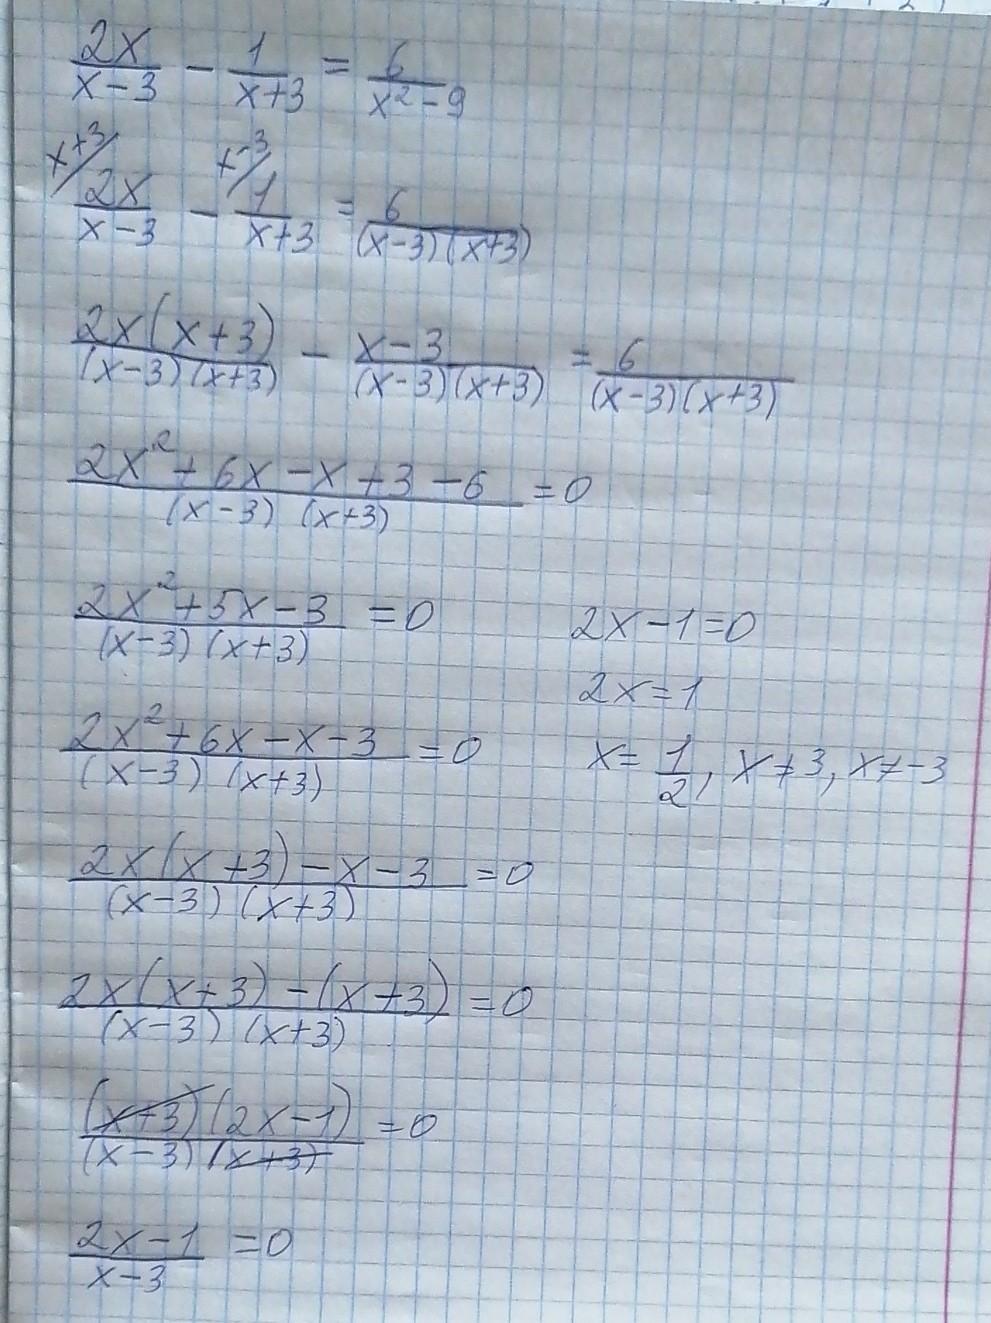 2x/(x-3) - 1/(x+3) = 6/(x²-9)
x+3/ 2x/(x-3) - x-3/ 1/(x+3) = 6/((x-3)(x+3))
2x(x+3)/((x-3)(x+3)) - (x-3)/((x-3)(x+3)) = 6/((x-3)(x+3))
(2x²+6x-x+3-6)/((x-3)(x+3)) = 0
(2x²+5x-3)/((x-3)(x+3)) = 0
(2x²+6x-x-3)/((x-3)(x+3)) = 0
(2x(x+3)-x-3)/((x-3)(x+3)) = 0
(2x(x+3)-(x+3))/((x-3)(x+3)) = 0
((x+3)(2x-1))/((x-3)(x+3)) = 0
(2x-1)/(x-3) = 0
2x-1=0
2x=1
x=1/2, x≠3, x≠-3